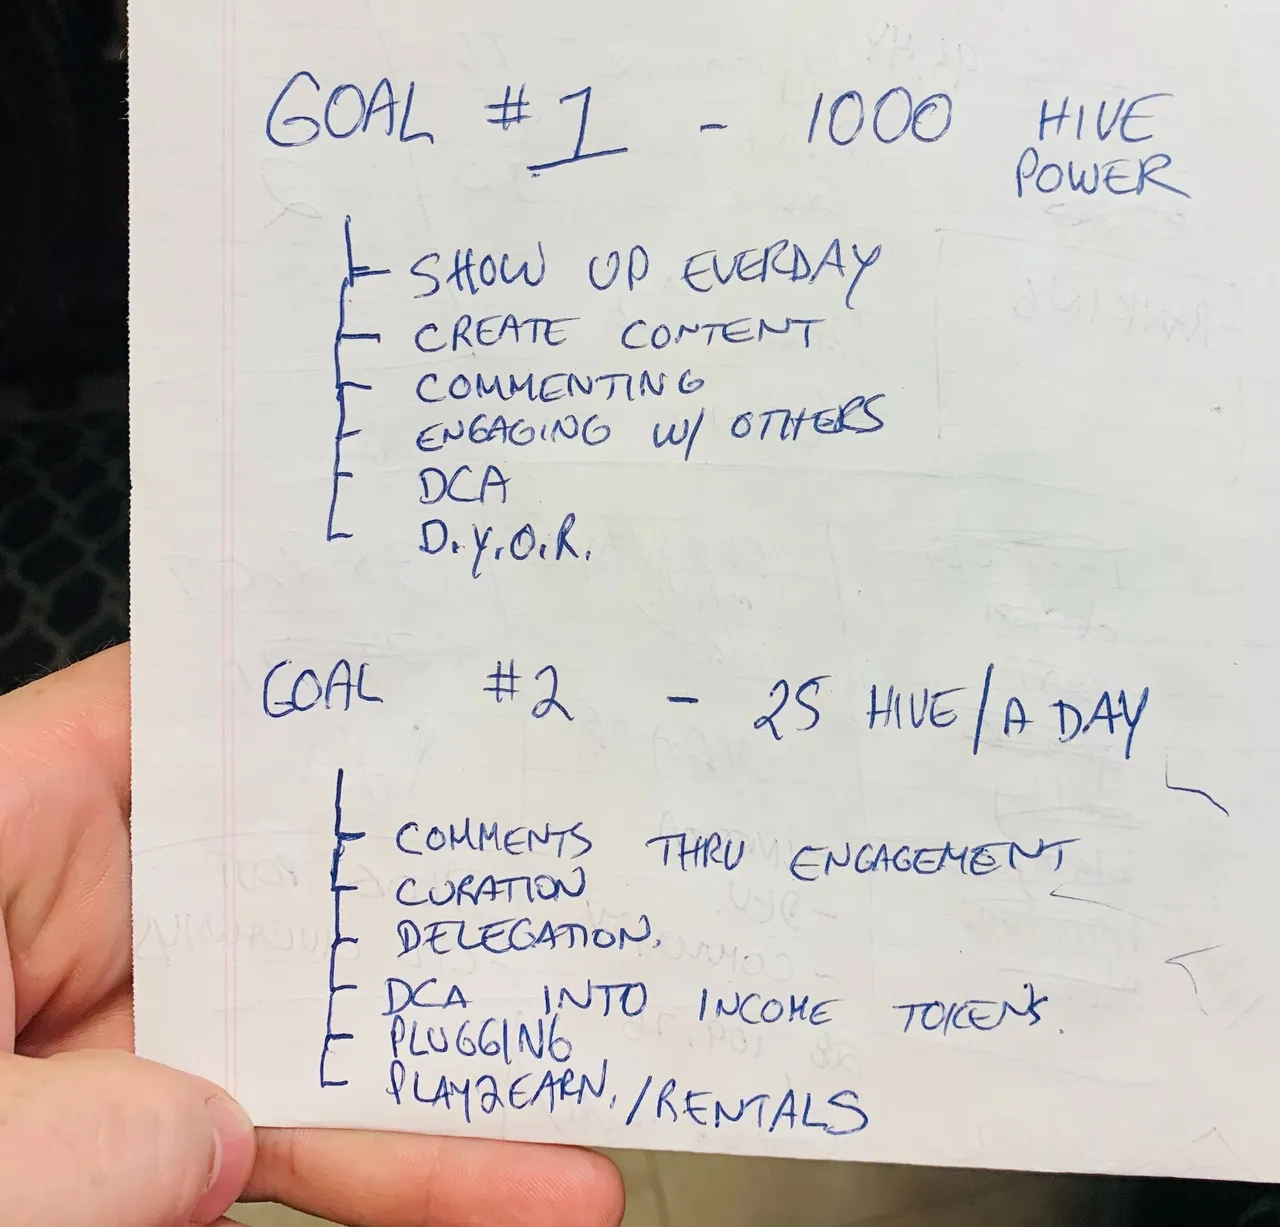 GOAL #1 - 1000 HIVE
POWER
SHOW UP EVERDAY
CREATE CONTENT
COMMENTING
ENGAGING W/ OTHERS
DCA
D.Y.O.R.
GOAL #2 - 25 HIVE/A DAY
COMMENTS THRU ENGAGEMENT
CURATION
DELEGATION.
DCA INTO INCOME TOKENS.
PLUGGING
PLAY2EARN./RENTALS